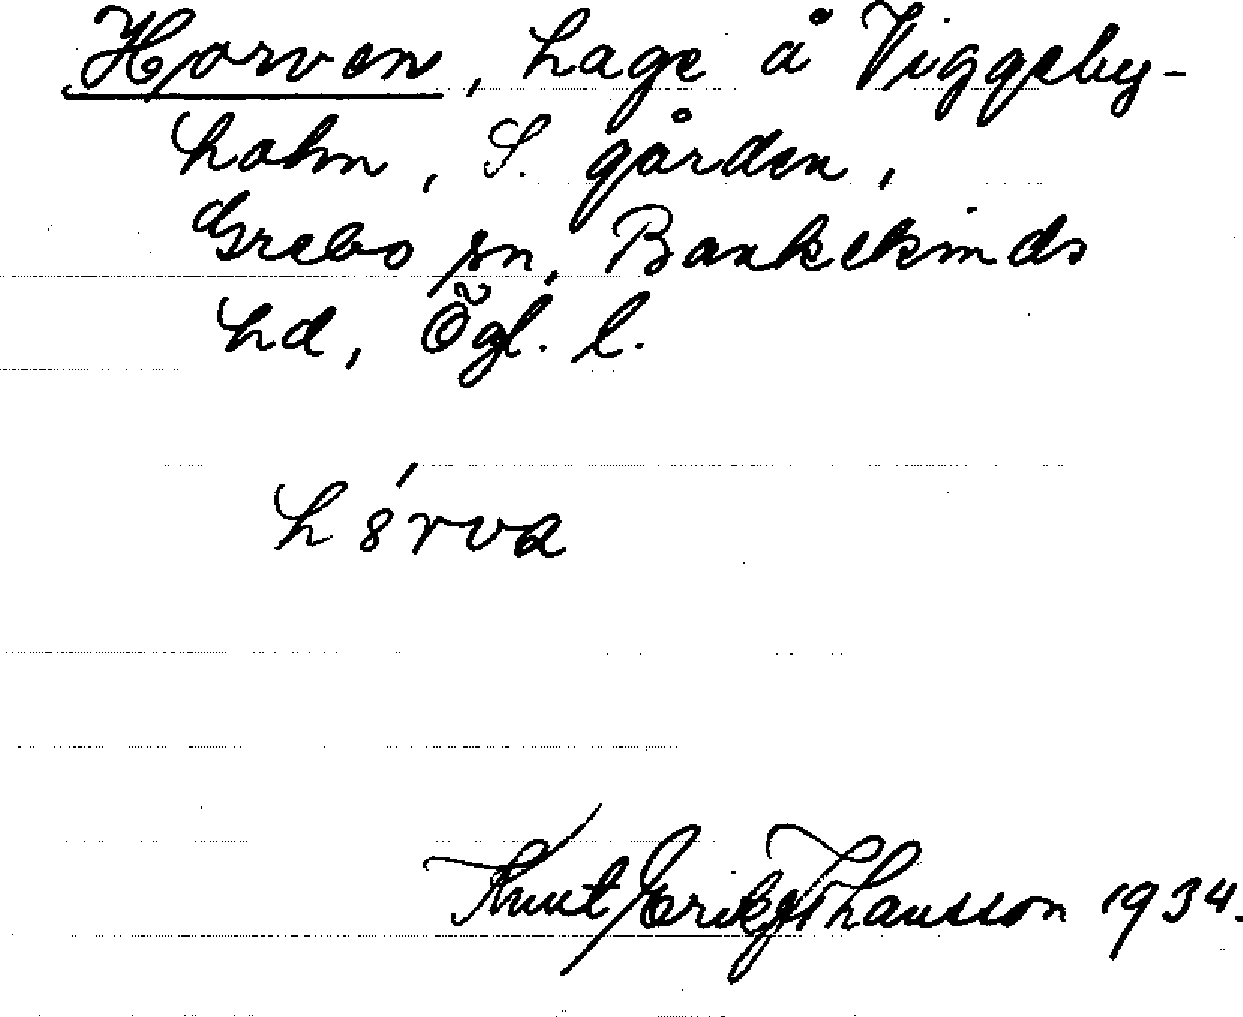 Horven, hage å Viggeby-
holm, S. gården,
Grebo sn, Bankekinds
hd, Ögl. l.
hórva
Knut Eriks Hansson 1934.